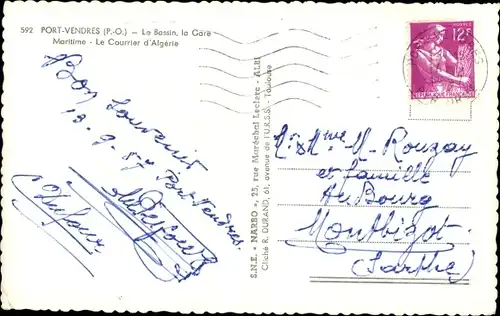 592 PORT-VENDRES (P.-O.) — Le Bassin, la Gare
Maritime - Le Courrier d'Algérie
Bon Souvenir
13-9-57 Port Vendres
Dufour
S.N.E. « NARBO », 25, rue Maréchal Leclerc - ALBI
Cliché R. DURAND, 61, avenue de l'U.R.S.S. - Toulouse
POSTES
12F
REPUBLIQUE FRANÇAISE
Mr & Mme M. Rouzay
et famille
Au Bourg
Montbizot
(Sarthe)